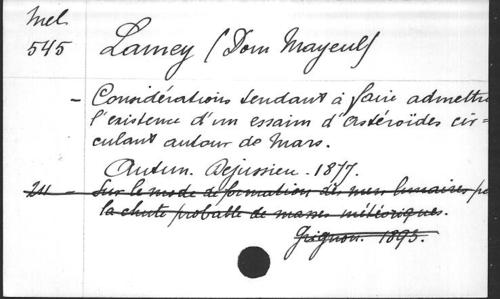 Mel.
545
Lamey (Dom Mayeul)
- Considérations tendant à faire admettre
l'existence d'un essaim d'astéroïdes cir-
culant autour de Mars.
Autun. Dejussieu. 1877.
- Sur le mode de formation des mers lunaires
la chute probable de masses météoriques.
Grignon. 1895.